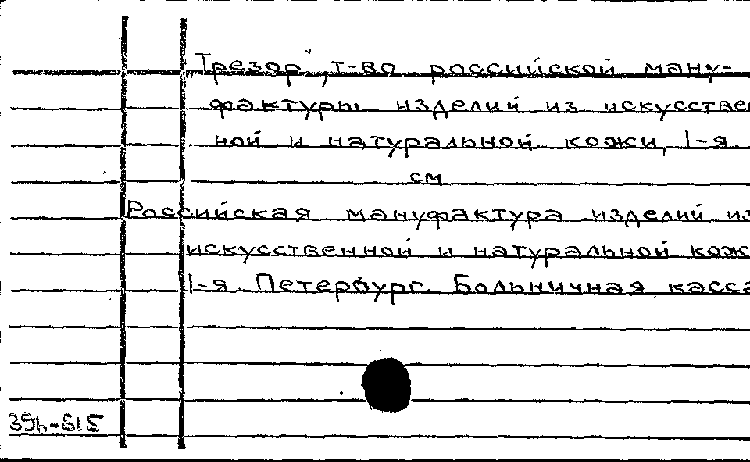 Трезор", т-во российской ману-
фактуры изделий из искусствен
ной и натуральной кожи, I-я.
см
Российская мануфактура изделий из
искусственной и натуральной кож
I-я. Петербург. Больничная касса